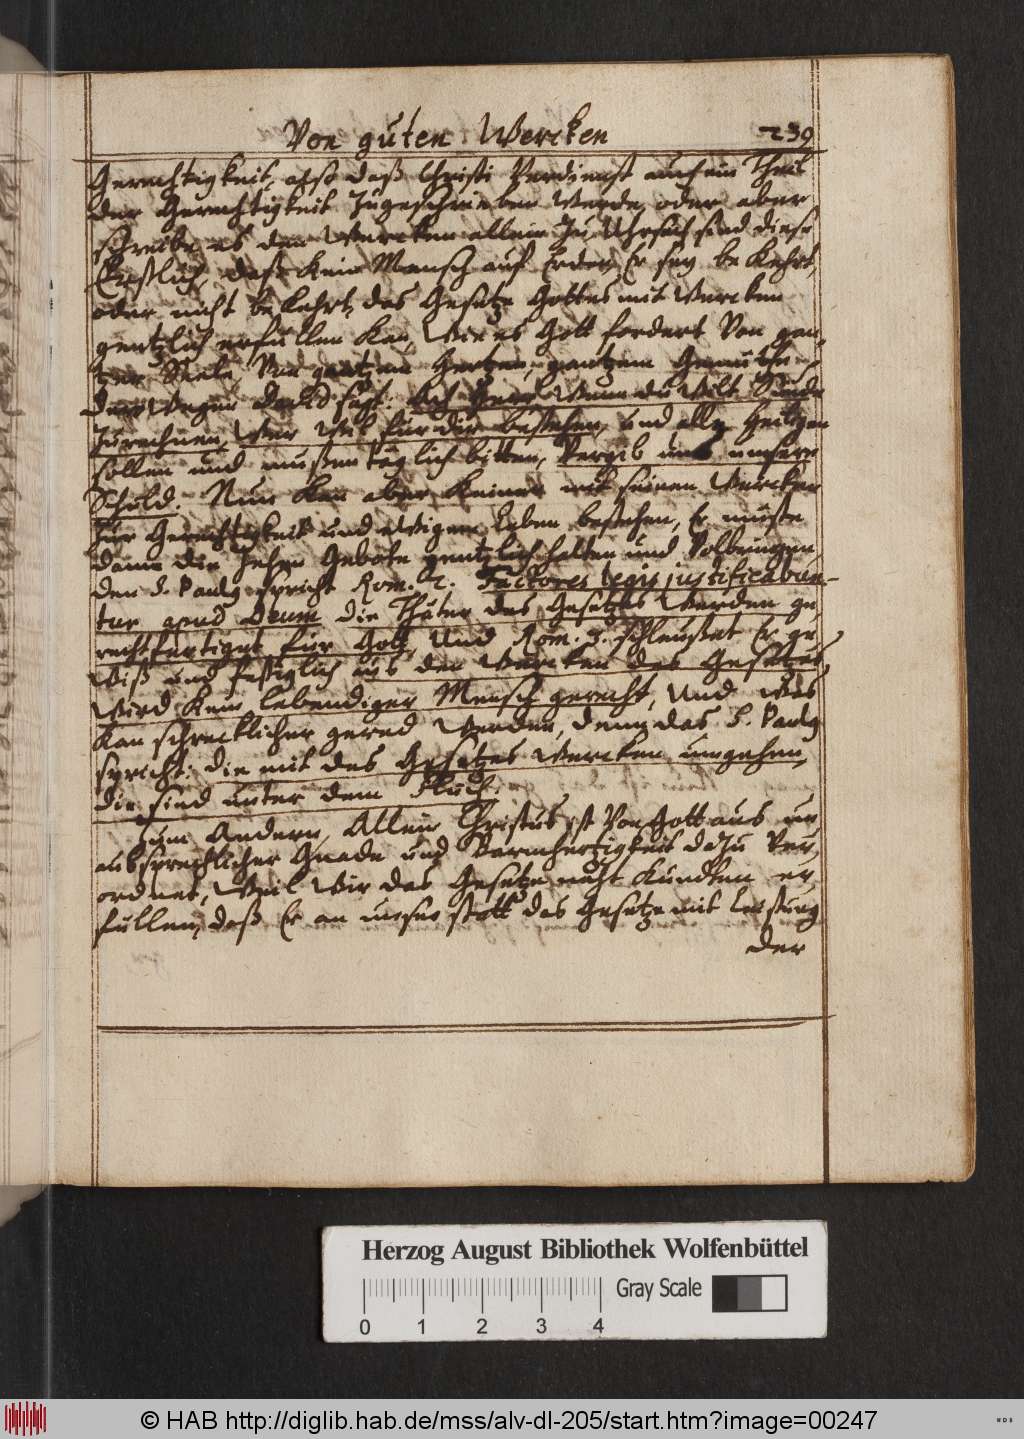 Von guten Wercken 239
Gerechtigkeit, alß daß Christi Verdienst auch ein Theil
der Gerechtigkeit Zugeschrieben Werde, oder aber
schreibe es den Wercken allein Zu, Uhrsach sind diese
Erstlich, daß Kein Mensch auf Erden, Er sey be Kehrt,
oder nicht be Kehrt, das Gesetze Gottes mit Wercken
gentzlich erfullen Kan, Wie es Gott fordert Von gan,
tzer Seele, Von gantzem Hertzen, gantzem Gemüthe
Derwegen David sagt: Ach Herr Wenn du Wilt Sünde
Zurechnen, Wer Wil für dir bestehen, und alle Heiligen
sollen und mußen täglich bitten, Vergib uns unsere
Schuld. Nun Kan aber Keiner mit seinen Wercken
Zur Gerechtigkeit und ewigem Leben bestehen, Er müste
dann die Zehen Gebote gentzlich halten und Volbringen,
den S. Paulg spricht Rom. 2. Factores legis justificabun-
tur apud Deum die Thäter des Gesetzes Werden ge,
rechtfertiget für Gott, Und Rom. 3. schleußet Er ge,
Wiß und festiglich aus den Wercken des Gesetzes,
Wird Kein lebendiger Mensch gerecht, Und Was
Kan schrecklicher gered Werden, denn das S. Paulg
spricht: die mit des Gesetzes Wercken umgehen,
die sind unter dem Fluch.
Zum Andern, Allein Christus ist Von Gott aus un
aussprechlicher Gnade und Barmhertigkeit daZu Ver,
ordnet, Weil Wir das Gesetze nicht Kundten er,
fullen, daß Er an unser statt das Gesetze mit Leistung
der
Herzog August Bibliothek Wolfenbüttel
Gray Scale
0 1 2 3 4
© HAB http://diglib.hab.de/mss/alv-dl-205/start.htm?image=00247